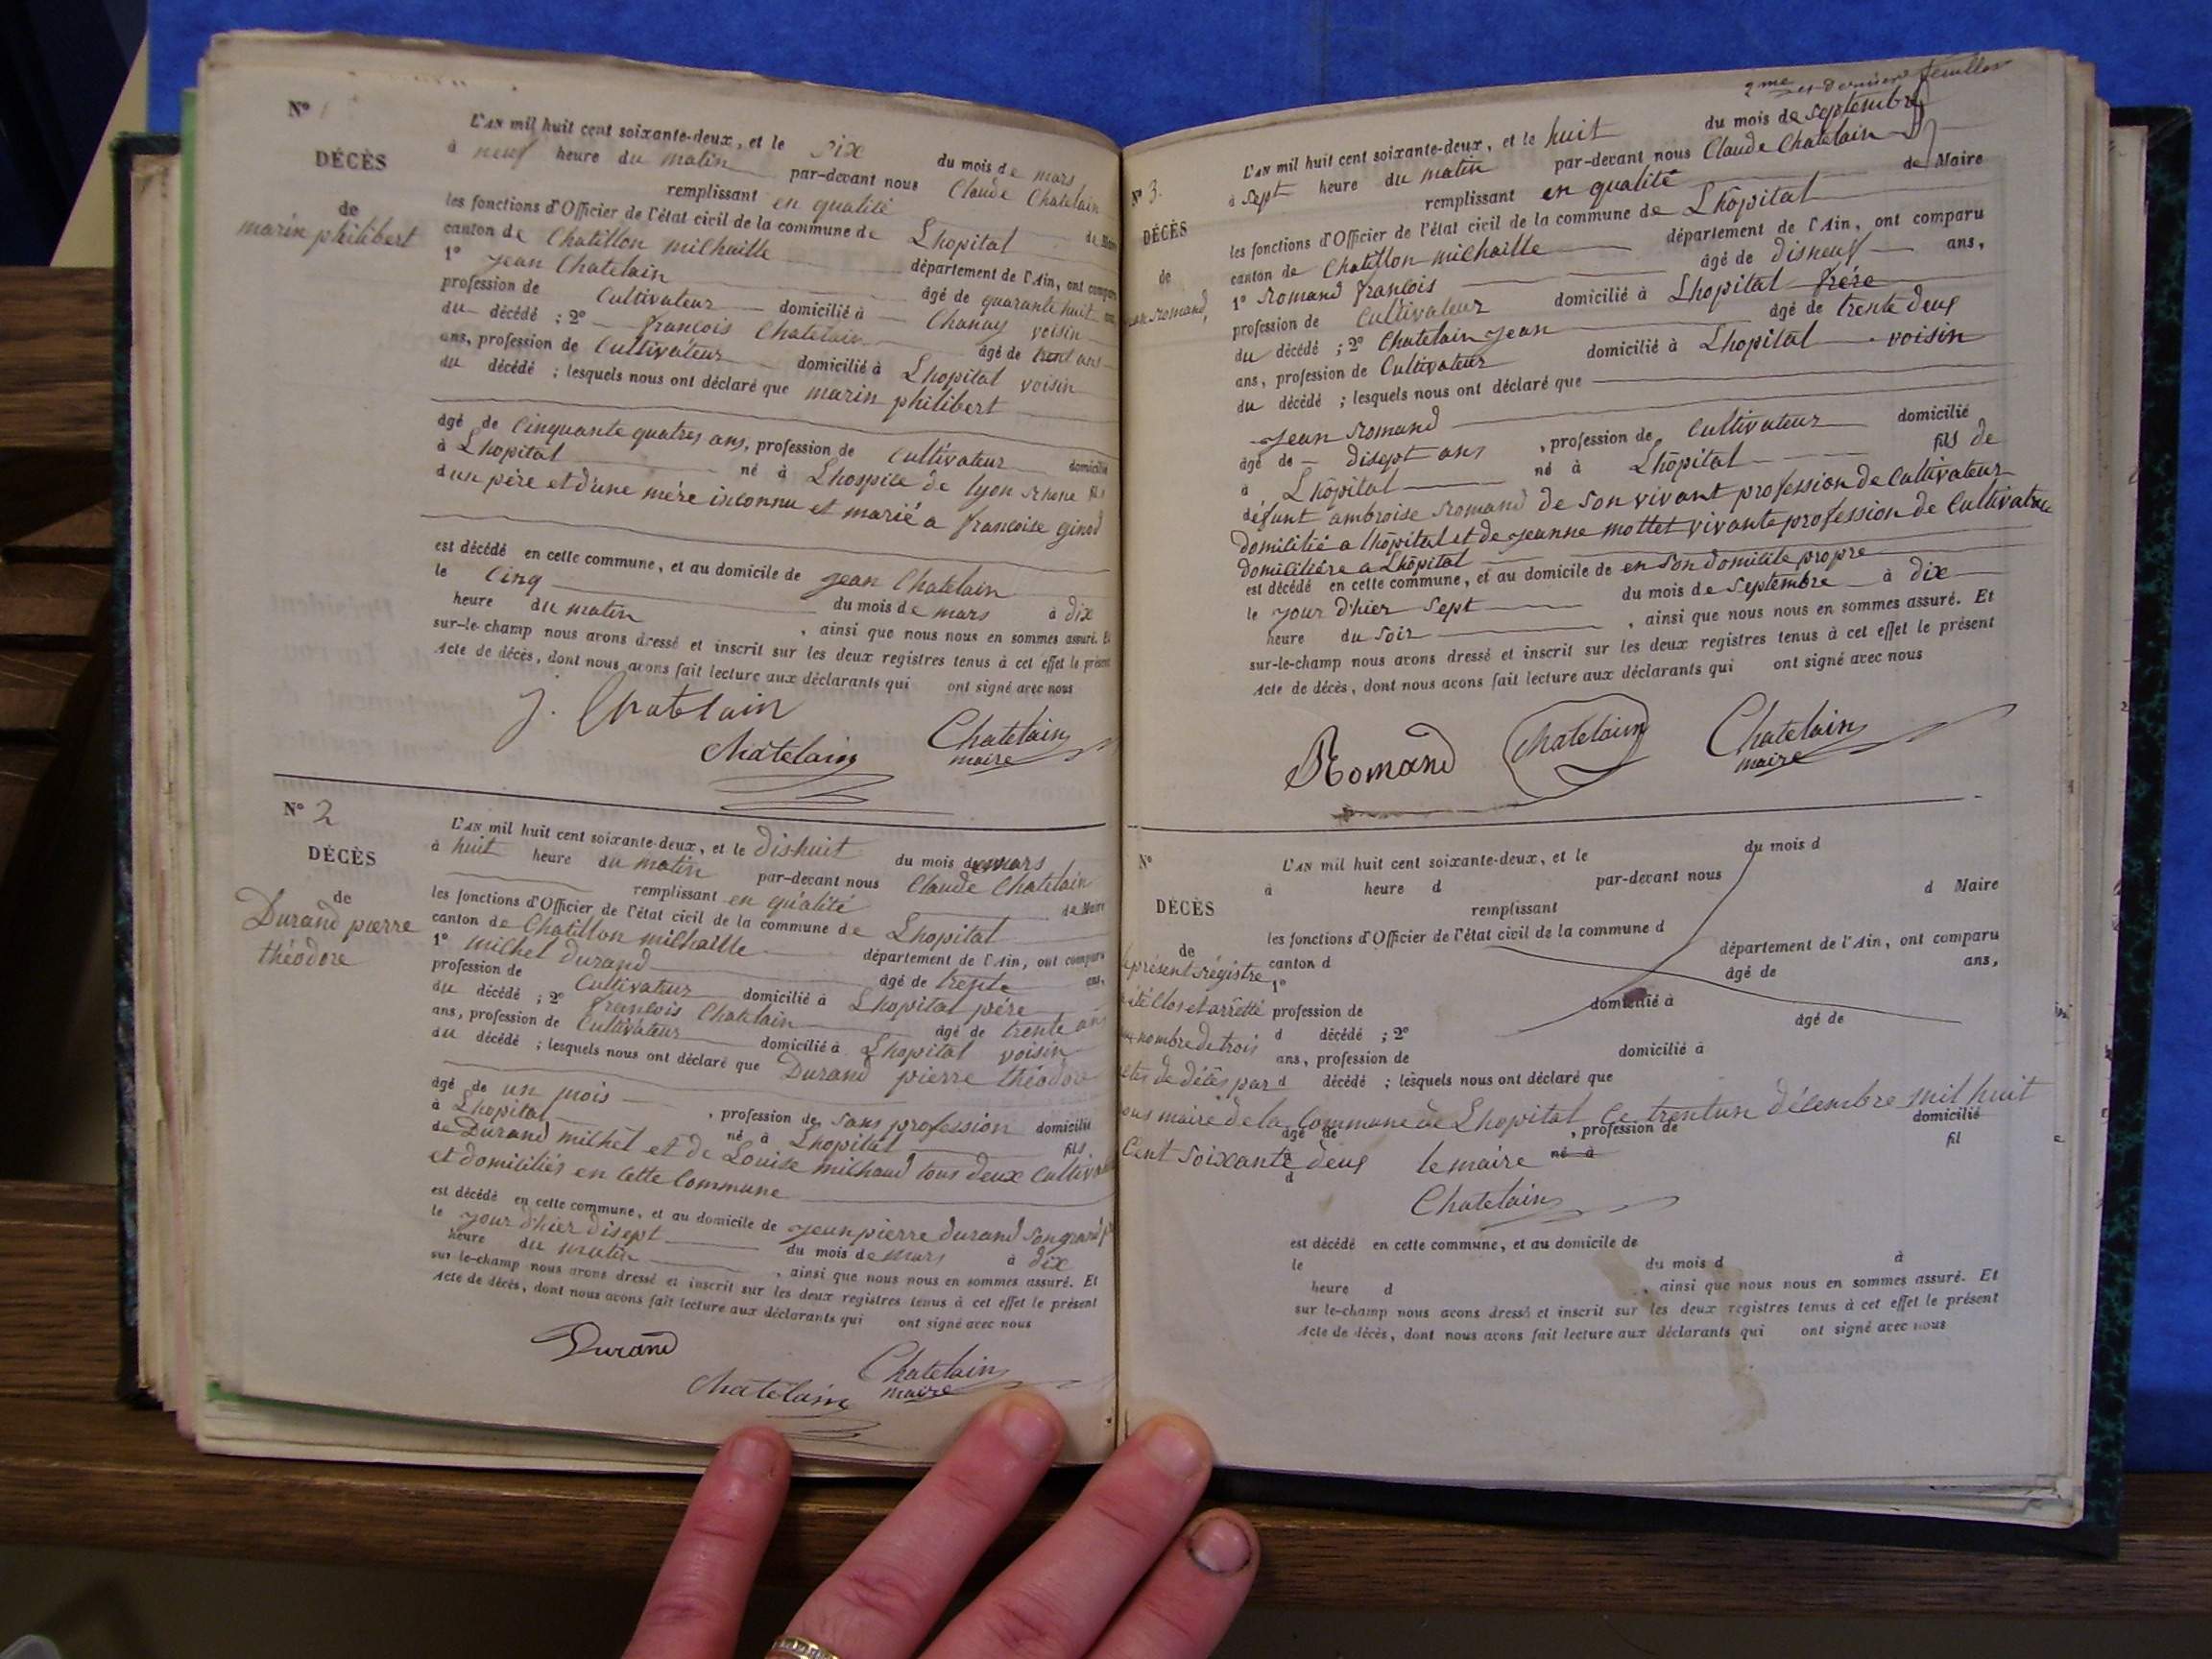 N° 1
DÉCÈS
de
marin philibert
L'AN mil huit cent soixante-deux, et le six du mois de mars
à neuf heure du matin par-devant nous Claude Chatelain
remplissant en qualité de Maire
les fonctions d'Officier de l'état civil de la commune de Lhopital
canton de Chatillon michaille département de l'Ain, ont comparu
1° jean Chatelain âgé de quarante huit ans,
profession de Cultivateur domicilié à Chanay voisin
du décédé ; 2° françois Chatelain âgé de trent ans
ans, profession de Cultivateur domicilié à Lhopital voisin
du décédé ; lesquels nous ont déclaré que marin philibert
âgé de Cinquante quatres ans, profession de Cultivateur domicilié
à Lhopital né à Lhospice de lyon rhone fils
d'un père et d'une mére inconnu et marié a françoise ginod
est décédé en cette commune, et au domicile de jean Chatelain
le Cinq du mois de mars à dix
heure du matin , ainsi que nous nous en sommes assuré. Et
sur-le-champ nous avons dressé et inscrit sur les deux registres tenus à cet effet le présent
Acte de décès, dont nous avons fait lecture aux déclarants qui ont signé avec nous
J. Chatelain
Chatelain
Chatelain
maire
N° 2
DÉCÈS
de
Durand pierre
théodore
L'AN mil huit cent soixante-deux, et le dishuit du mois de mars
à huit heure du matin par-devant nous Claude Chatelain
remplissant en qualité de Maire
les fonctions d'Officier de l'état civil de la commune de Lhopital
canton de Chatillon michaille département de l'Ain, ont comparu
1° michel durand âgé de trente ans,
profession de Cultivateur domicilié à Lhopital pére
du décédé ; 2° françois Chatelain âgé de trente ans
ans, profession de Cultivateur domicilié à Lhopital voisin
du décédé ; lesquels nous ont déclaré que Durand pierre théodore
âgé de un mois , profession de sans profession domicilié
à Lhopital né à Lhopital fils
de Durand michel et de Louise michaud tous deux
et domiciliés en cette Commune
est décédé en cette commune, et au domicile de jean pierre durand son grand
le jour d'hier disept du mois de mars à dix
heure du matin , ainsi que nous nous en sommes assuré. Et
sur le-champ nous avons dressé et inscrit sur les deux registres tenus à cet effet le présent
Acte de décès, dont nous avons fait lecture aux déclarants qui ont signé avec nous
Durand
Chatelain
Chatelain
maire
2me et dernière feuillet
N° 3.
DÉCÈS
de
romand,
L'AN mil huit cent soixante-deux, et le huit du mois de septembre
à sept heure du matin par-devant nous Claude Chatelain
remplissant en qualité de Maire
les fonctions d'Officier de l'état civil de la commune de Lhôpital
canton de Chatillon michaille département de l'Ain, ont comparu
1° romand françois âgé de disneuf ans,
profession de Cultivateur domicilié à Lhopital frére
du décédé ; 2° Chatelain jean âgé de trente deux
ans, profession de Cultivateur domicilié à Lhopital voisin
du décédé ; lesquels nous ont déclaré que
jean romand
âgé de disept ans , profession de Cultivateur domicilié
à Lhôpital né à Lhôpital fils de
défunt ambroise romand de son vivant profession de Cultivateur
domicilié a lhôpital et de jeanne mottet vivante profession de Cultivatrice
domiciliére a Lhôpital
est décédé en cette commune, et au domicile de en son domicile propre
le jour d'hier sept du mois de septembre à dix
heure du soir , ainsi que nous nous en sommes assuré. Et
sur-le-champ nous avons dressé et inscrit sur les deux registres tenus à cet effet le présent
Acte de décès, dont nous avons fait lecture aux déclarants qui ont signé avec nous
Romand
Chatelain
Chatelain
maire
N°
DÉCÈS
de
L'AN mil huit cent soixante-deux, et le du mois d
à heure d par-devant nous
remplissant d Maire
les fonctions d'Officier de l'état civil de la commune d
canton d département de l'Ain, ont comparu
1° âgé de ans,
profession de domicilié à
d décédé ; 2° âgé de
ans, profession de domicilié à
d décédé ; lesquels nous ont déclaré que
le présent régistre
été Clos et arretté
au nombre de trois
actes de décès par
nous maire de la Commune de Lhopital Ce trentun décembre mil huit
Cent soixante deux le maire
Chatelain
âgé de , profession de domicilié
à né à fil
d
est décédé en cette commune, et au domicile de
le du mois d à
heure d , ainsi que nous nous en sommes assuré. Et
sur le-champ nous avons dressé et inscrit sur les deux registres tenus à cet effet le présent
Acte de décès, dont nous avons fait lecture aux déclarants qui ont signé avec nous